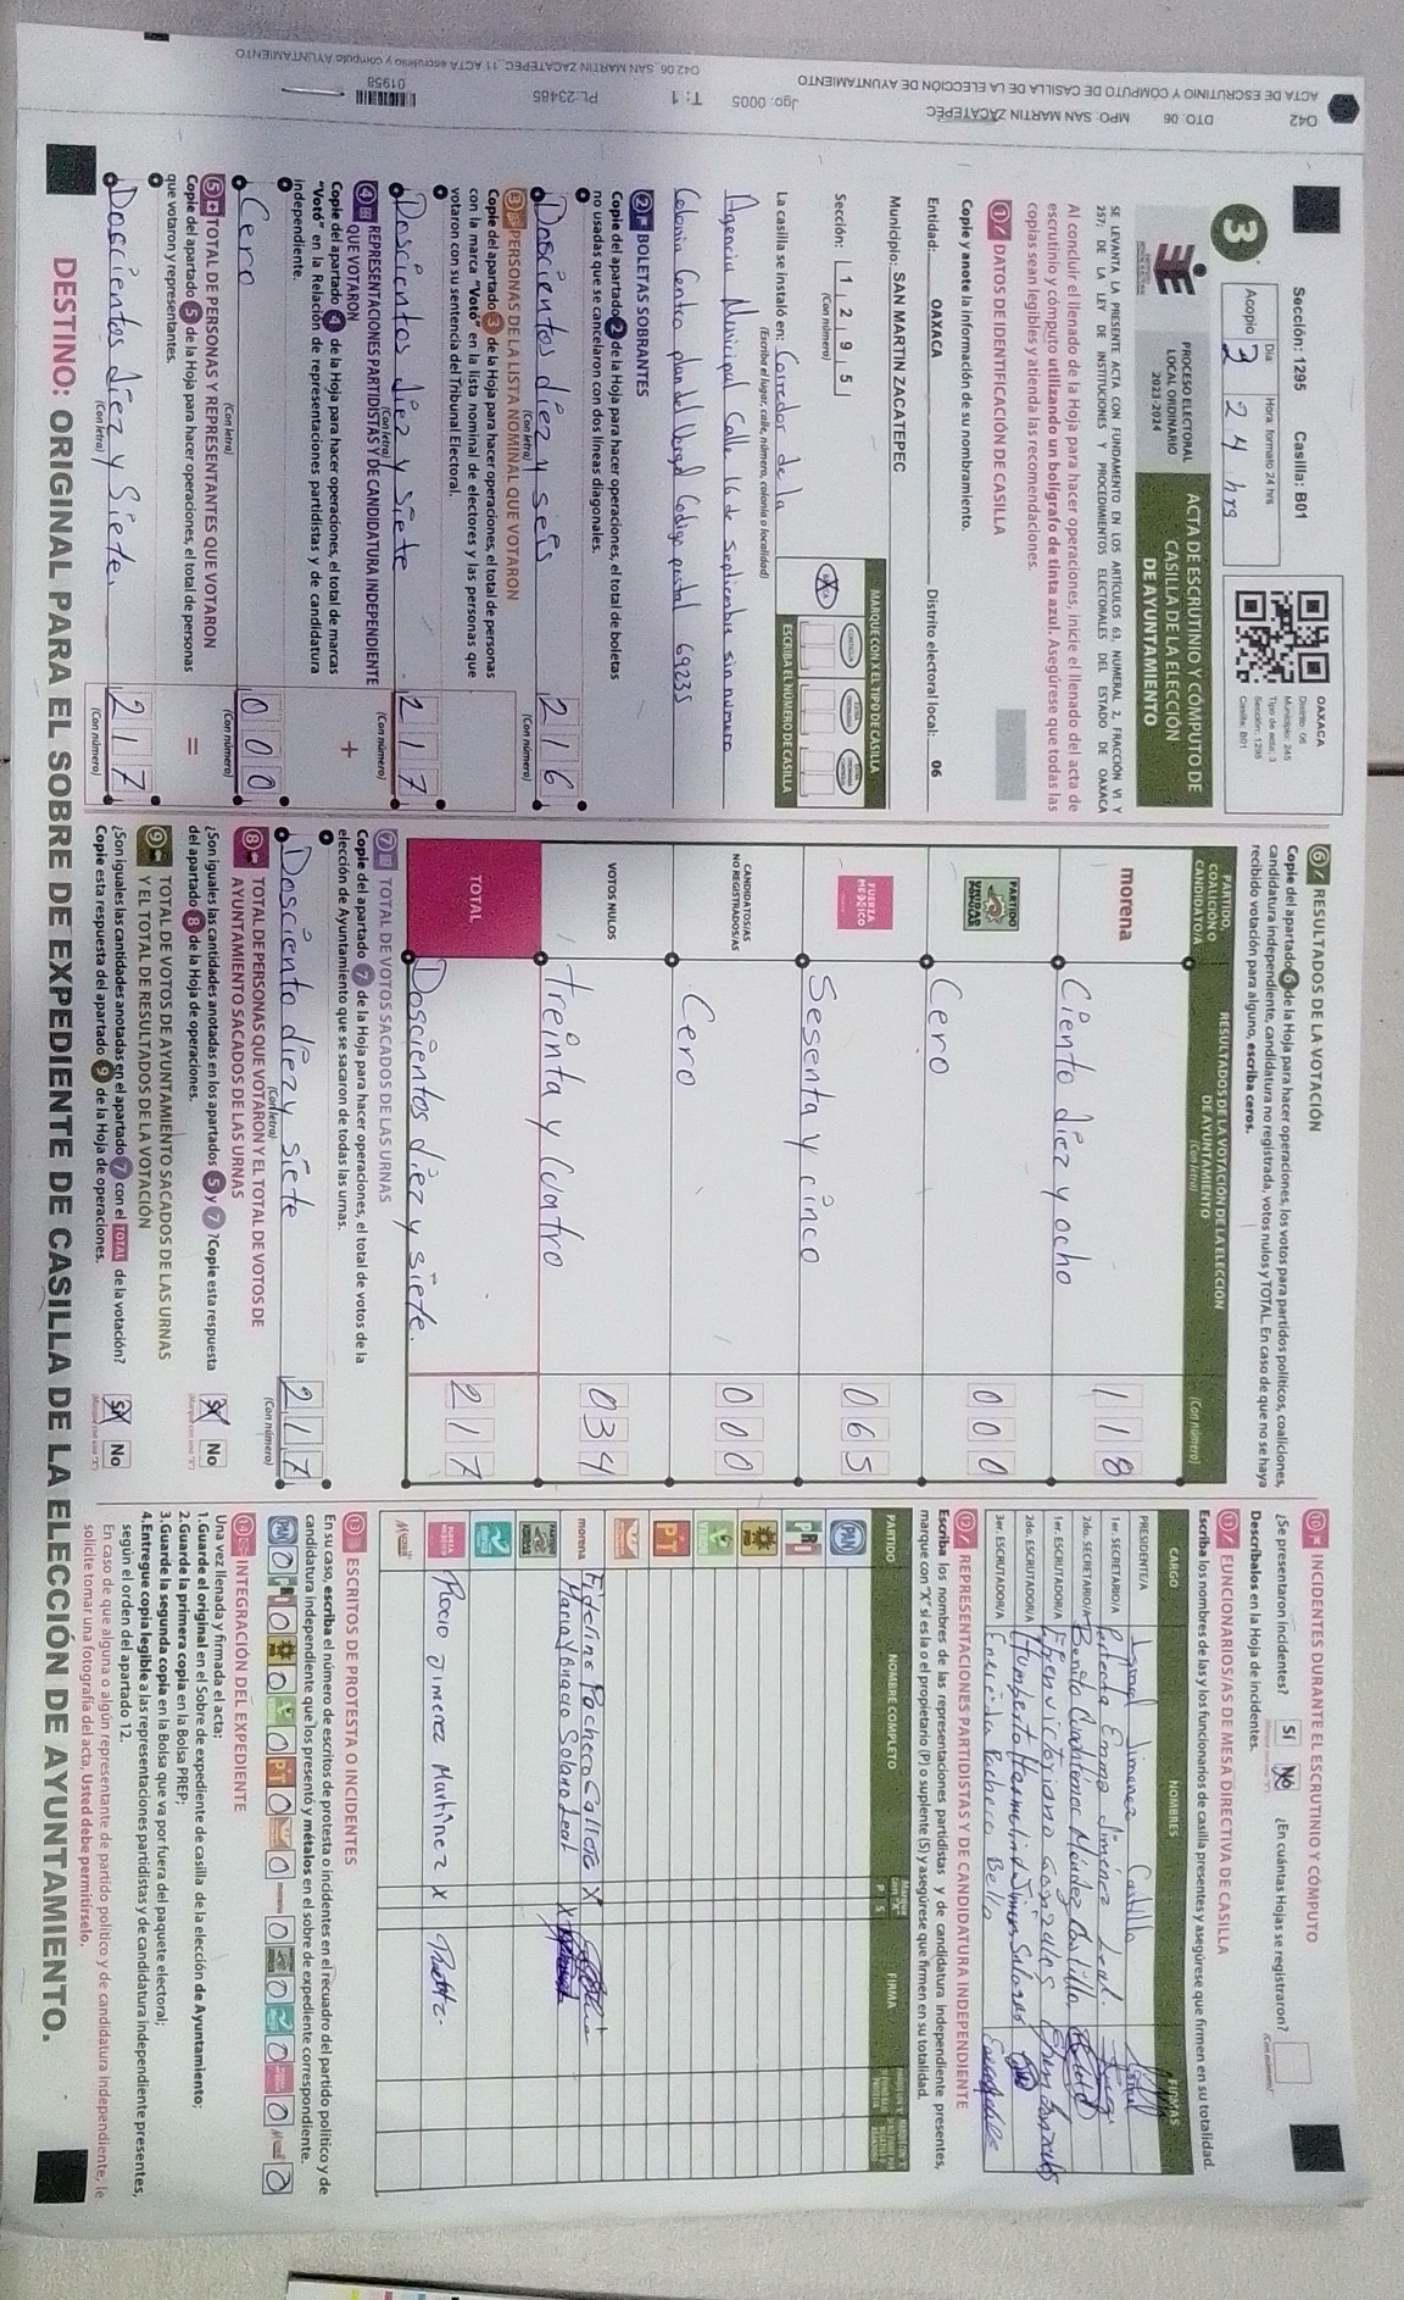 ACTA DE ESCRUTINIO Y CÓMPUTO DE CASILLA DE LA ELECCIÓN DE AYUNTAMIENTO
042 DTO: 06 MPO: SAN MARTIN ZACATEPEC Jgo: 0005 T: 1 PL: 23485 01958
042 06_SAN MARTIN ZACATEPEC_11 ACTA escrutinio y cómputo AYUNTAMIENTO
3
Sección: 1295 Casilla: B01
Día Hora: formato 24 hrs
Acopio 3 24 hrs
OAXACA
Distrito: 06
Municipio: 245
Tipo de acta: 3
Sección: 1295
Casilla: B01
PROCESO ELECTORAL
LOCAL ORDINARIO
2023-2024
ACTA DE ESCRUTINIO Y CÓMPUTO DE
CASILLA DE LA ELECCIÓN
DE AYUNTAMIENTO
SE LEVANTA LA PRESENTE ACTA CON FUNDAMENTO EN LOS ARTÍCULOS 63, NUMERAL 2, FRACCIÓN VI Y
257; DE LA LEY DE INSTITUCIONES Y PROCEDIMIENTOS ELECTORALES DEL ESTADO DE OAXACA
Al concluir el llenado de la Hoja para hacer operaciones, inicie el llenado del acta de
escrutinio y cómputo utilizando un bolígrafo de tinta azul. Asegúrese que todas las
copias sean legibles y atienda las recomendaciones.
1 DATOS DE IDENTIFICACIÓN DE CASILLA
Copie y anote la información de su nombramiento.
Entidad: OAXACA Distrito electoral local: 06
Municipio: SAN MARTIN ZACATEPEC
Sección: 1 2 9 5
(Con número)
MARQUE CON X EL TIPO DE CASILLA
ESCRIBA EL NÚMERO DE CASILLA
La casilla se instaló en: Corredor de la
(Escriba el lugar, calle, número, colonia o localidad)
Agencia Municipal Calle 16 de Septiembre sin numero
Colonia Centro plan del Vergel Codigo postal 69235
2 BOLETAS SOBRANTES
Copie del apartado 2 de la Hoja para hacer operaciones, el total de boletas
no usadas que se cancelaron con dos líneas diagonales.
Doscientos diez y seis 216
(Con letra) (Con número)
3 PERSONAS DE LA LISTA NOMINAL QUE VOTARON
Copie del apartado 3 de la Hoja para hacer operaciones, el total de personas
con la marca "Votó" en la lista nominal de electores y las personas que
votaron con su sentencia del Tribunal Electoral.
Doscientos diez y siete 217
(Con letra) (Con número)
4 REPRESENTACIONES PARTIDISTAS Y DE CANDIDATURA INDEPENDIENTE
QUE VOTARON
Copie del apartado 4 de la Hoja para hacer operaciones, el total de marcas
"Votó" en la Relación de representaciones partidistas y de candidatura
independiente.
+
Cero 000
(Con letra) (Con número)
5 TOTAL DE PERSONAS Y REPRESENTANTES QUE VOTARON
Copie del apartado 5 de la Hoja para hacer operaciones, el total de personas
que votaron y representantes.
=
Doscientos diez y Siete. 217
(Con letra) (Con número)
6 RESULTADOS DE LA VOTACIÓN
Copie del apartado 6 de la Hoja para hacer operaciones, los votos para partidos políticos, coaliciones,
candidatura independiente, candidatura no registrada, votos nulos y TOTAL. En caso de que no se haya
recibido votación para alguno, escriba ceros.
PARTIDO,
COALICIÓN O
CANDIDATO/A
RESULTADOS DE LA VOTACIÓN DE LA ELECCIÓN
DE AYUNTAMIENTO
(Con letra) (Con número)
morena Ciento diez y ocho 118
PARTIDO UNIDAD POPULAR Cero 000
FUERZA MÉXICO Sesenta y cinco 065
CANDIDATOS/AS
NO REGISTRADOS/AS Cero 000
VOTOS NULOS treinta y Cuatro 034
TOTAL Doscientos diez y siete. 217
7 TOTAL DE VOTOS SACADOS DE LAS URNAS
Copie del apartado 7 de la Hoja para hacer operaciones, el total de votos de la
elección de Ayuntamiento que se sacaron de todas las urnas.
Dosciento diez y siete 217
(Con letra) (Con número)
8 TOTAL DE PERSONAS QUE VOTARON Y EL TOTAL DE VOTOS DE
AYUNTAMIENTO SACADOS DE LAS URNAS
¿Son iguales las cantidades anotadas en los apartados 5 y 7? Copie esta respuesta
del apartado 8 de la Hoja de operaciones.
Sí No
9 TOTAL DE VOTOS DE AYUNTAMIENTO SACADOS DE LAS URNAS
Y EL TOTAL DE RESULTADOS DE LA VOTACIÓN
¿Son iguales las cantidades anotadas en el apartado 7 con el TOTAL de la votación?
Copie esta respuesta del apartado 9 de la Hoja de operaciones.
Sí No
10 INCIDENTES DURANTE EL ESCRUTINIO Y CÓMPUTO
¿Se presentaron incidentes? Sí No ¿En cuántas Hojas se registraron?
(Con número)
Descríbalos en la Hoja de incidentes.
11 FUNCIONARIOS/AS DE MESA DIRECTIVA DE CASILLA
Escriba los nombres de las y los funcionarios de casilla presentes y asegúrese que firmen en su totalidad.
CARGO NOMBRES FIRMAS
PRESIDENTE/A Jimenez Castillo
1er. SECRETARIO/A Emma Jiménez Leal.
2do. SECRETARIO/A Benito Cuauhtémoc Méndez Castillo
1er. ESCRUTADOR/A Efren victoriano Gonzales
2do. ESCRUTADOR/A Humberto Salazar
3er. ESCRUTADOR/A Pacheco Bello
12 REPRESENTACIONES PARTIDISTAS Y DE CANDIDATURA INDEPENDIENTE
Escriba los nombres de las representaciones partidistas y de candidatura independiente presentes,
marque con "X" si es la o el propietario (P) o suplente (S) y asegúrese que firmen en su totalidad.
PARTIDO NOMBRE COMPLETO P S FIRMA
PAN
PRI
PRD
VERDE
PT
morena Fidelino Pacheco X
Maria Ignacio Solano Leal X
FUERZA MÉXICO Rocio Jimenez Martinez X
13 ESCRITOS DE PROTESTA O INCIDENTES
En su caso, escriba el número de escritos de protesta o incidentes en el recuadro del partido político y de
candidatura independiente que los presentó y métalos en el sobre de expediente correspondiente.
PAN 0 PRI 0 PRD 0 VERDE 0 PT 0 0 morena 0 0 0 0 0
14 INTEGRACIÓN DEL EXPEDIENTE
Una vez llenada y firmada el acta:
1.Guarde el original en el Sobre de expediente de casilla de la elección de Ayuntamiento;
2.Guarde la primera copia en la Bolsa PREP;
3.Guarde la segunda copia en la Bolsa que va por fuera del paquete electoral;
4.Entregue copia legible a las representaciones partidistas y de candidatura independiente presentes,
según el orden del apartado 12.
En caso de que alguna o algún representante de partido político y de candidatura independiente, le
solicite tomar una fotografía del acta, Usted debe permitírselo.
DESTINO: ORIGINAL PARA EL SOBRE DE EXPEDIENTE DE CASILLA DE LA ELECCIÓN DE AYUNTAMIENTO.